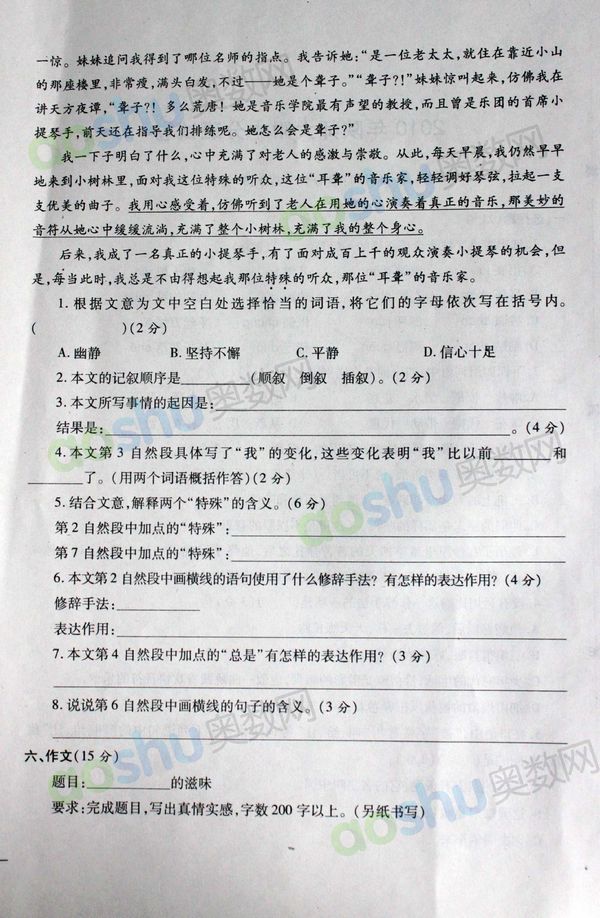 一惊。妹妹追问我得到了哪位名师的指点。我告诉她:“是一位老太太,就住在靠近小山
的那座楼里,非常瘦,满头白发,不过——她是个聋子。”“聋子?!”妹妹惊叫起来,仿佛我在
讲天方夜谭,“聋子?!多么荒唐!她是音乐学院最有声望的教授,而且曾是乐团的首席小
提琴手,前天还在指导我们排练呢。她怎么会是聋子?”
我一下子明白了什么,心中充满了对老人的感激与崇敬。从此,每天早晨,我仍然早早
地来到小树林里,面对我这位特殊的听众,这位“耳聋”的音乐家,轻轻调好琴弦,拉起一支
支优美的曲子。我用心感受着,仿佛听到了老人在用她的心演奏着真正的音乐,那美妙的
音符从她心中缓缓流淌,充满了整个小树林,充满了我的整个身心。
后来,我成了一名真正的小提琴手,有了面对成百上千的观众演奏小提琴的机会,但
是,每当此时,我总是不由得想起我那位特殊的听众,那位“耳聋”的音乐家。
1. 根据文意为文中空白处选择恰当的词语,将它们的字母依次写在括号内。
( )(2 分)
A. 幽静 B. 坚持不懈 C. 平静 D. 信心十足
2. 本文的记叙顺序是________(顺叙 倒叙 插叙)。(2 分)
3. 本文所写事情的起因是:________
结果是:________。(4 分)
4. 本文第 3 自然段具体写了“我”的变化,这些变化表明“我”比以前________和
________了。(用两个词语概括作答)(2 分)
5. 结合文意,解释两个“特殊”的含义。(6 分)
第 2 自然段中加点的“特殊”:________
第 7 自然段中加点的“特殊”:________
6. 本文第 2 自然段中画横线的语句使用了什么修辞手法?有怎样的表达作用?(4 分)
修辞手法:________
表达作用:________
7. 本文第 4 自然段中加点的“总是”有怎样的表达作用?(3 分)
8. 说说第 6 自然段中画横线的句子的含义。(3 分)
六、作文(15 分)
题目:________的滋味
要求:完成题目,写出真情实感,字数 200 字以上。(另纸书写)
aoshu奥数网
aoshu奥数网
aoshu奥数网
aoshu奥数网
aoshu奥数网
aoshu奥数网